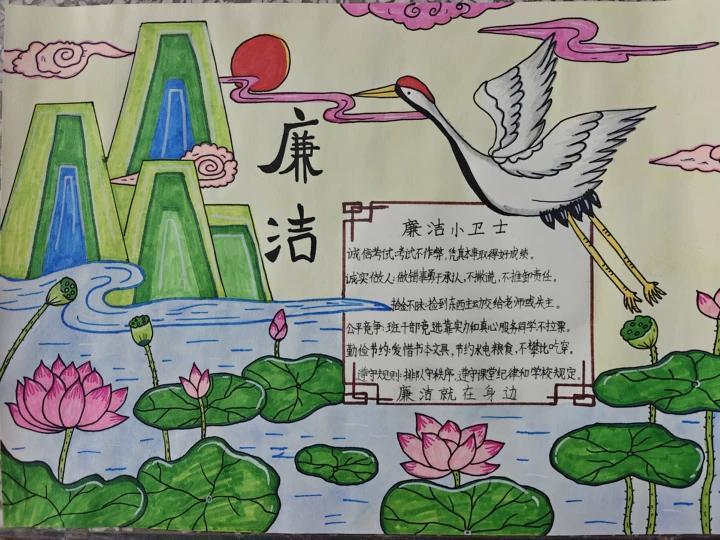 廉洁
廉洁小卫士
诚信考试:考试不作弊,凭真本事取得好成绩。
诚实做人:做错事勇于承认,不撒谎,不推卸责任。
拾金不昧:捡到东西主动交给老师或失主。
公平竞争:班干部竞选靠实力和真心服务同学不拉票。
勤俭节约:爱惜书本文具,节约水电粮食,不攀比吃穿。
遵守规则:排队守秩序,遵守课堂纪律和学校规定。
廉洁就在身边